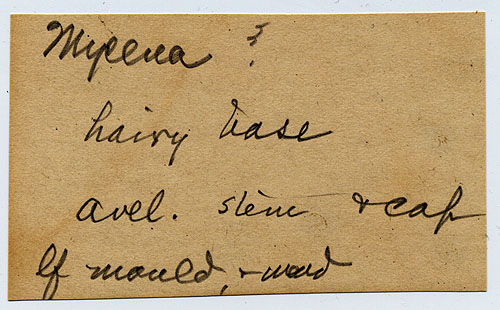 Mycena ?
hairy base
avel. stem & cap
lf mould, & wood